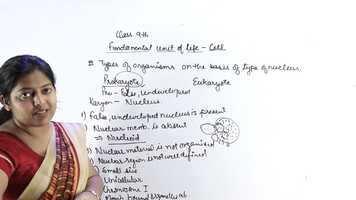 Class 9th
Fundamental Unit of life - Cell
Types of organisms on the basis of type of nucleus.
Prokaryote Eukaryote
Pro - False, Undeveloped
Karyon - Nucleus
1) False, undeveloped nucleus is present
Nuclear memb. is absent
⇒ Nucleoid
Nuclear material is not organised
Nuclear region is not well defined
Small size
Unicellular
Chromosome 1
Memb bound organelle ab